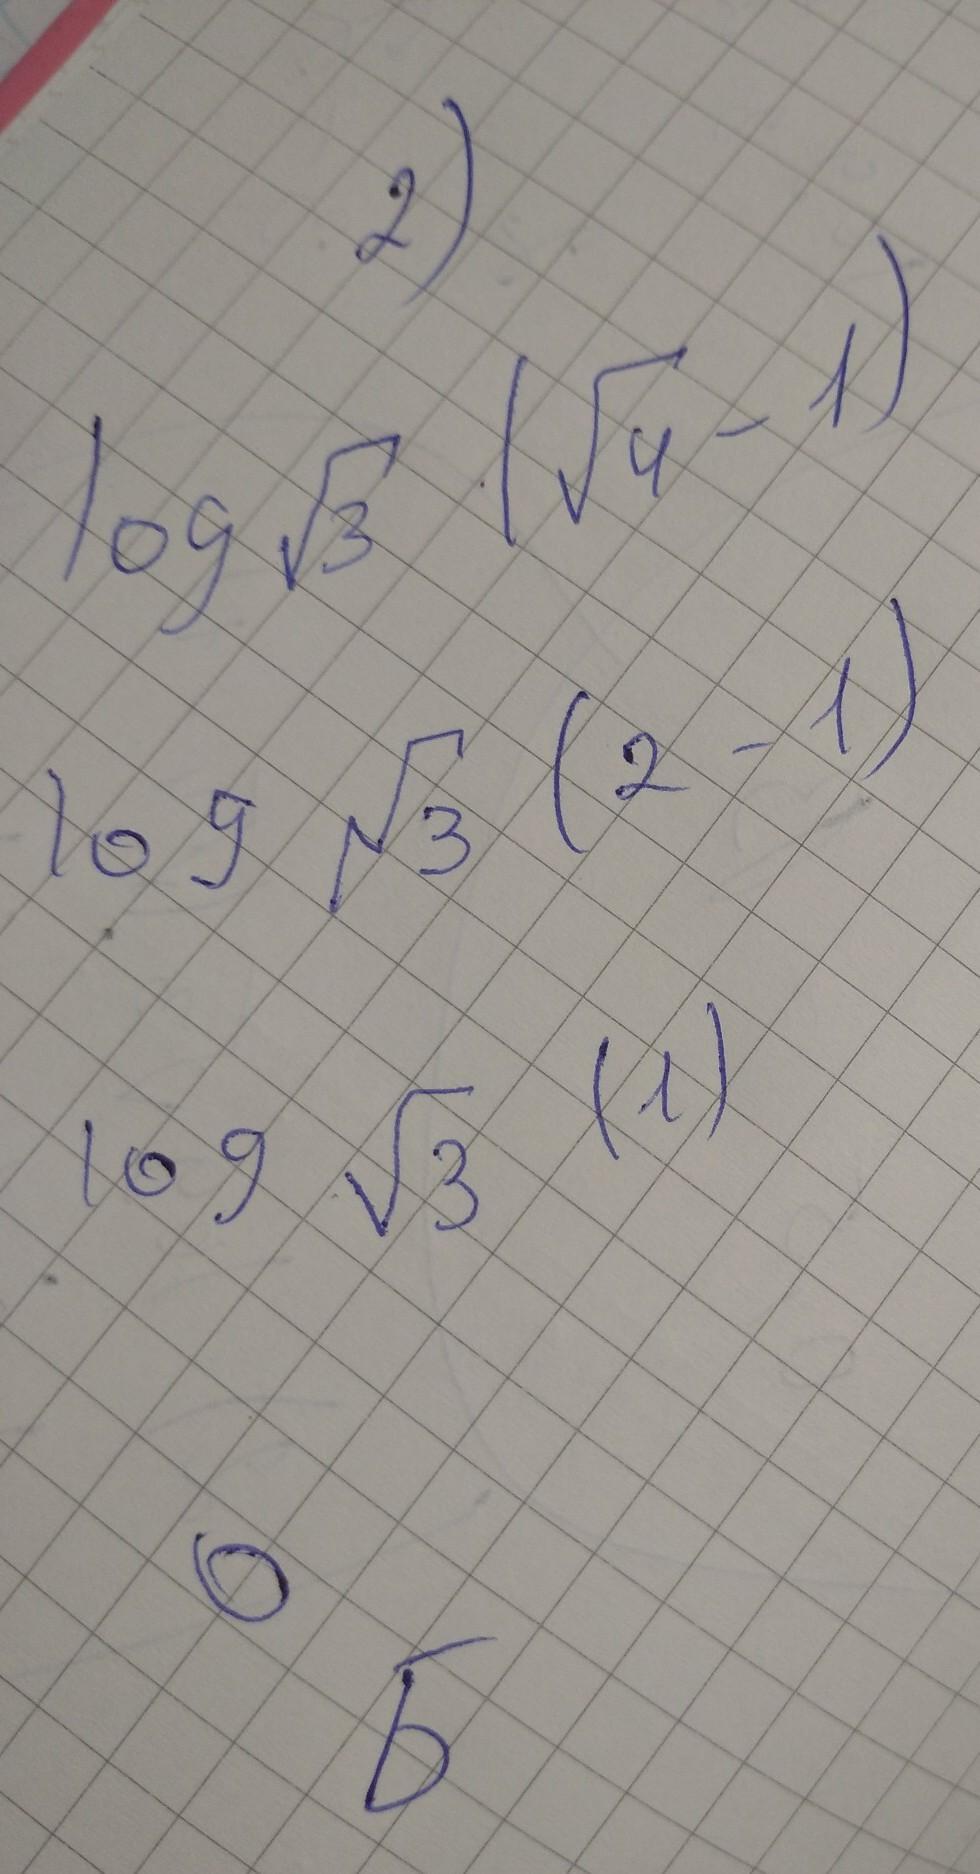 2)
log √3 (√4 - 1)
log √3 (2 - 1)
log √3 (1)
0
Б